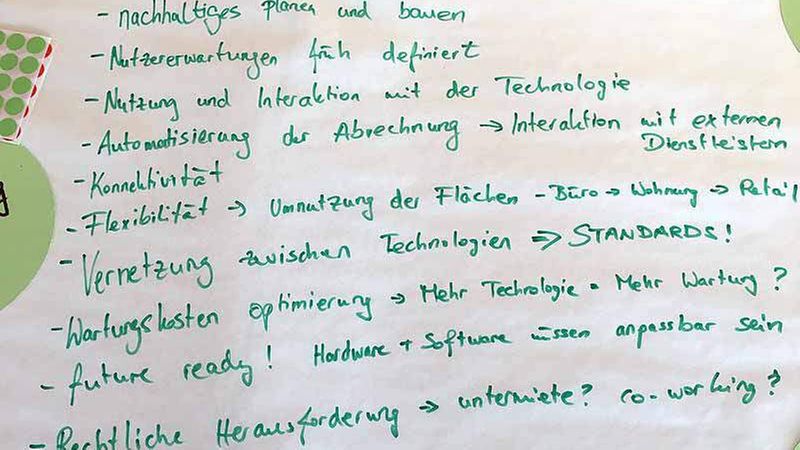 - nachhaltiges planen und bauen
- Nutzererwartungen früh definiert
- Nutzung und Interaktion mit der Technologie
- Automatisierung der Abrechnung → Interaktion mit externen
Dienstleistern
- Konnektivität
- Flexibilität → Umnutzung der Flächen - Büro → Wohnung → Retail
- Vernetzung zwischen Technologien ⇒ STANDARDS!
- Wartungskosten optimierung → Mehr Technologie = Mehr Wartung?
- future ready! Hardware + Software müssen anpassbar sein
- Rechtliche Herausforderung → untermiete? co-working?